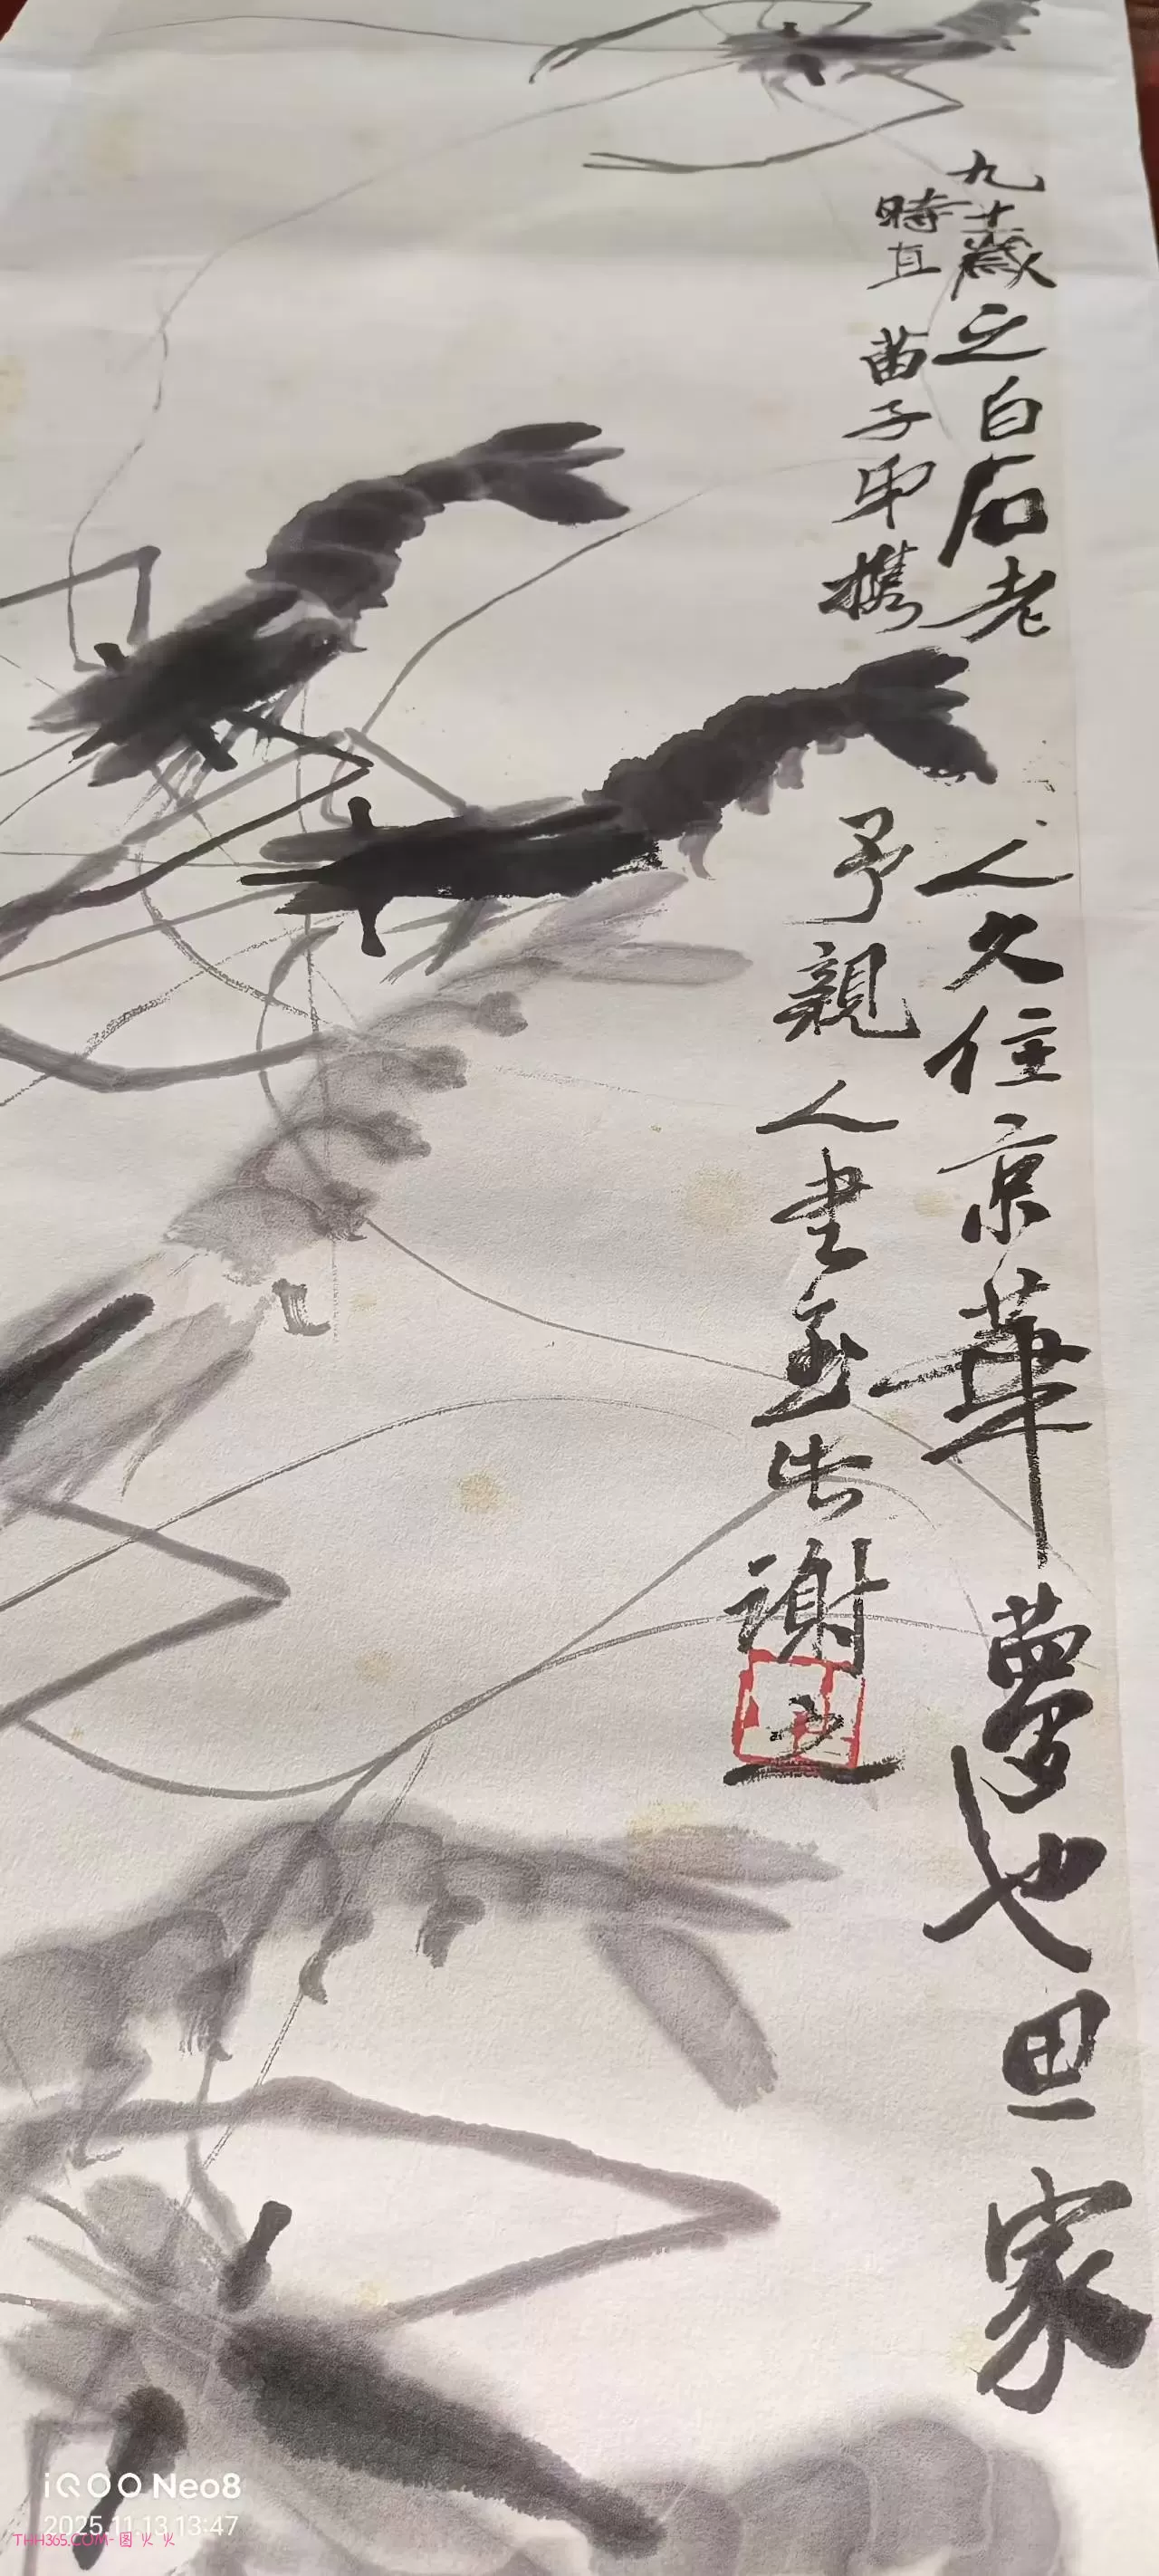 九十歲之白石老
人久住京華夢也思家
時直苗子印携
予親人書至告謝
iQOO Neo8
2025.11.13 13:47
THH365.COM-图火火